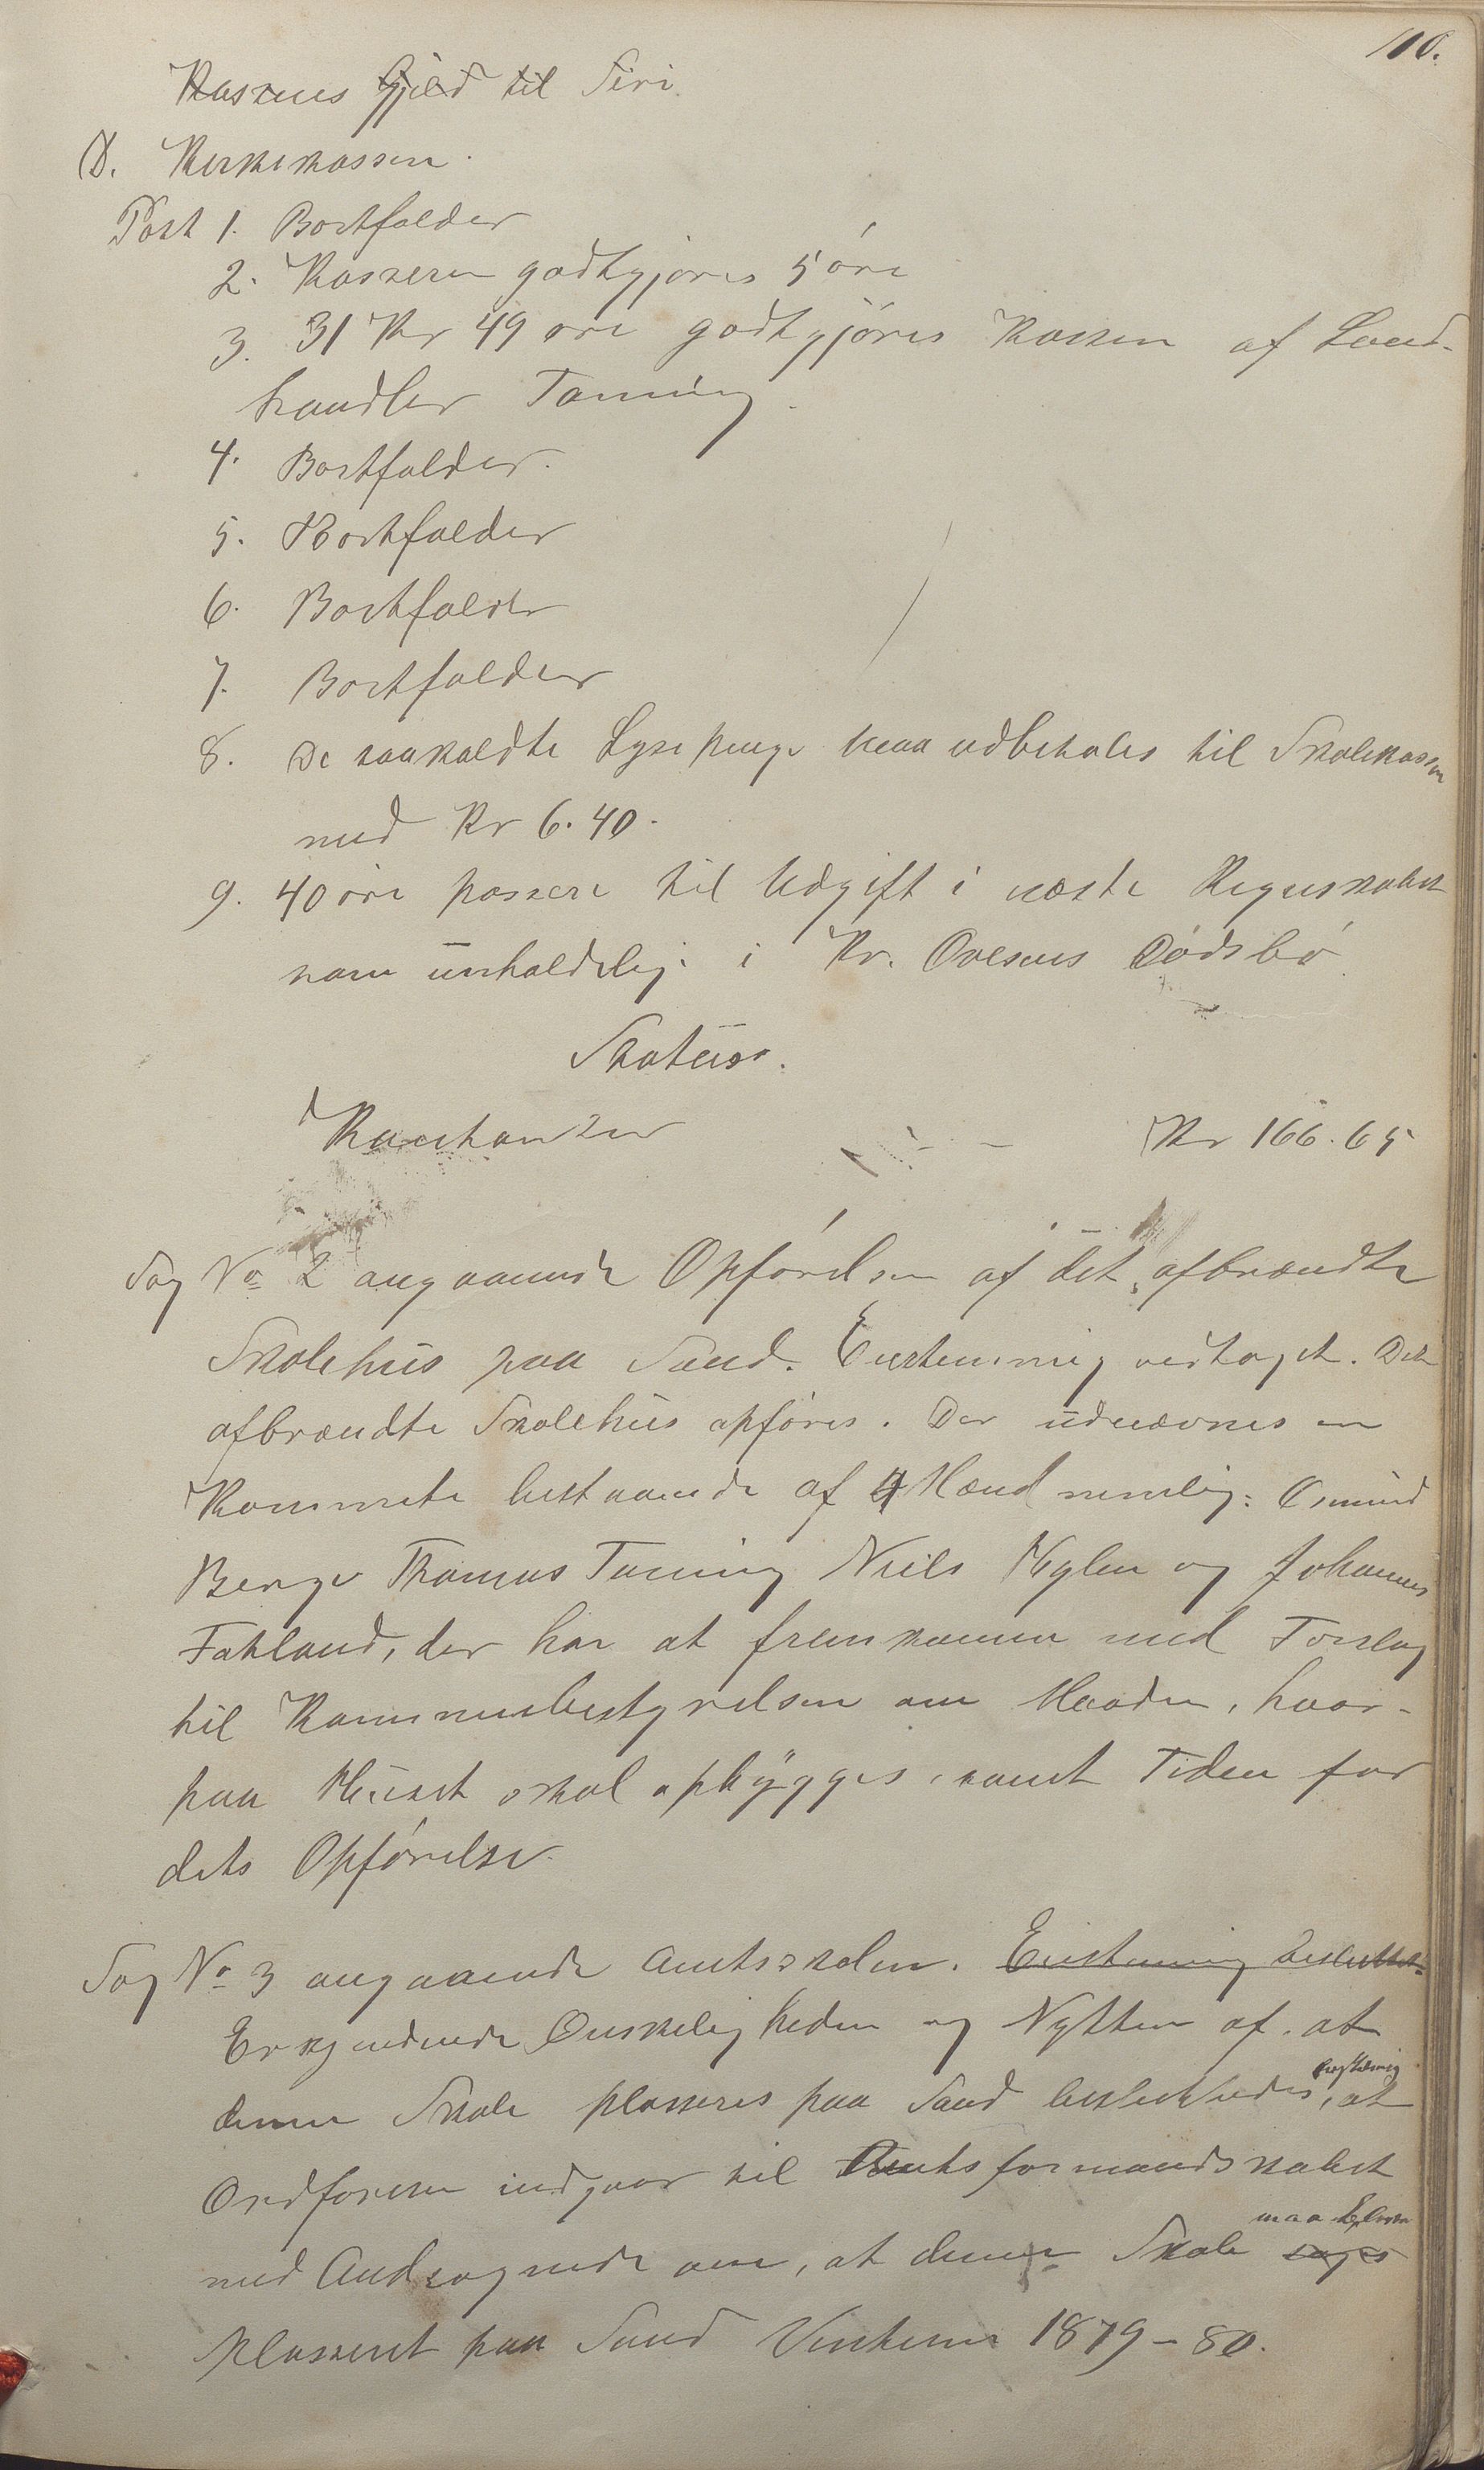 110.
Kassens Gjeld til Siri
D. Kirkekassen.
Post 1. Bortfalder
2. Kassen godtgjøres 5 øre
3. 31 Kr 49 øre godtgjøres Kassen af Land-
handler Tanning.
4. Bortfalder.
5. Bortfalder
6. Bortfalder
7. Bortfalder
8. De saakaldte Lysepenge maa udbetales til Skolekassen
med Kr 6.40.
9. 40 øre passere til Udgift i næste Regnskabet
som uerholdelig i Kr. Ovesens Dødsbo
Status.
Kontanter - - Kr 166.65
Sag No 2 angaaende Opførelsen af det afbrændte
Skolehus paa Sand. Enstemmig vedtaget. Det
afbrændte Skolehus opføres. Der udnævnes en
Kommite bestaaende af 4 Mænd nemlig: Osmund
Berge Thomas Tanning Niels Hylen og Johannes
Fatland, der har at fremkomme med Forslag
til Kommunebestyrelsen om Maaden, hvor-
paa Huset skal opbygges, samt Tiden for
dets Opførelse.
Sag No 3 angaaende Amtsskolen. Enstemmig besluttet
Erkjendende Ønskeligheden og Nytten af, at
denne Skole plasseres paa Sand besluttedes, at
Ordføreren indgaar til Amtsformandskabet
med Andragende om, at denne Skole maa blive
plasseret paa Sand Vinteren 1879-80.